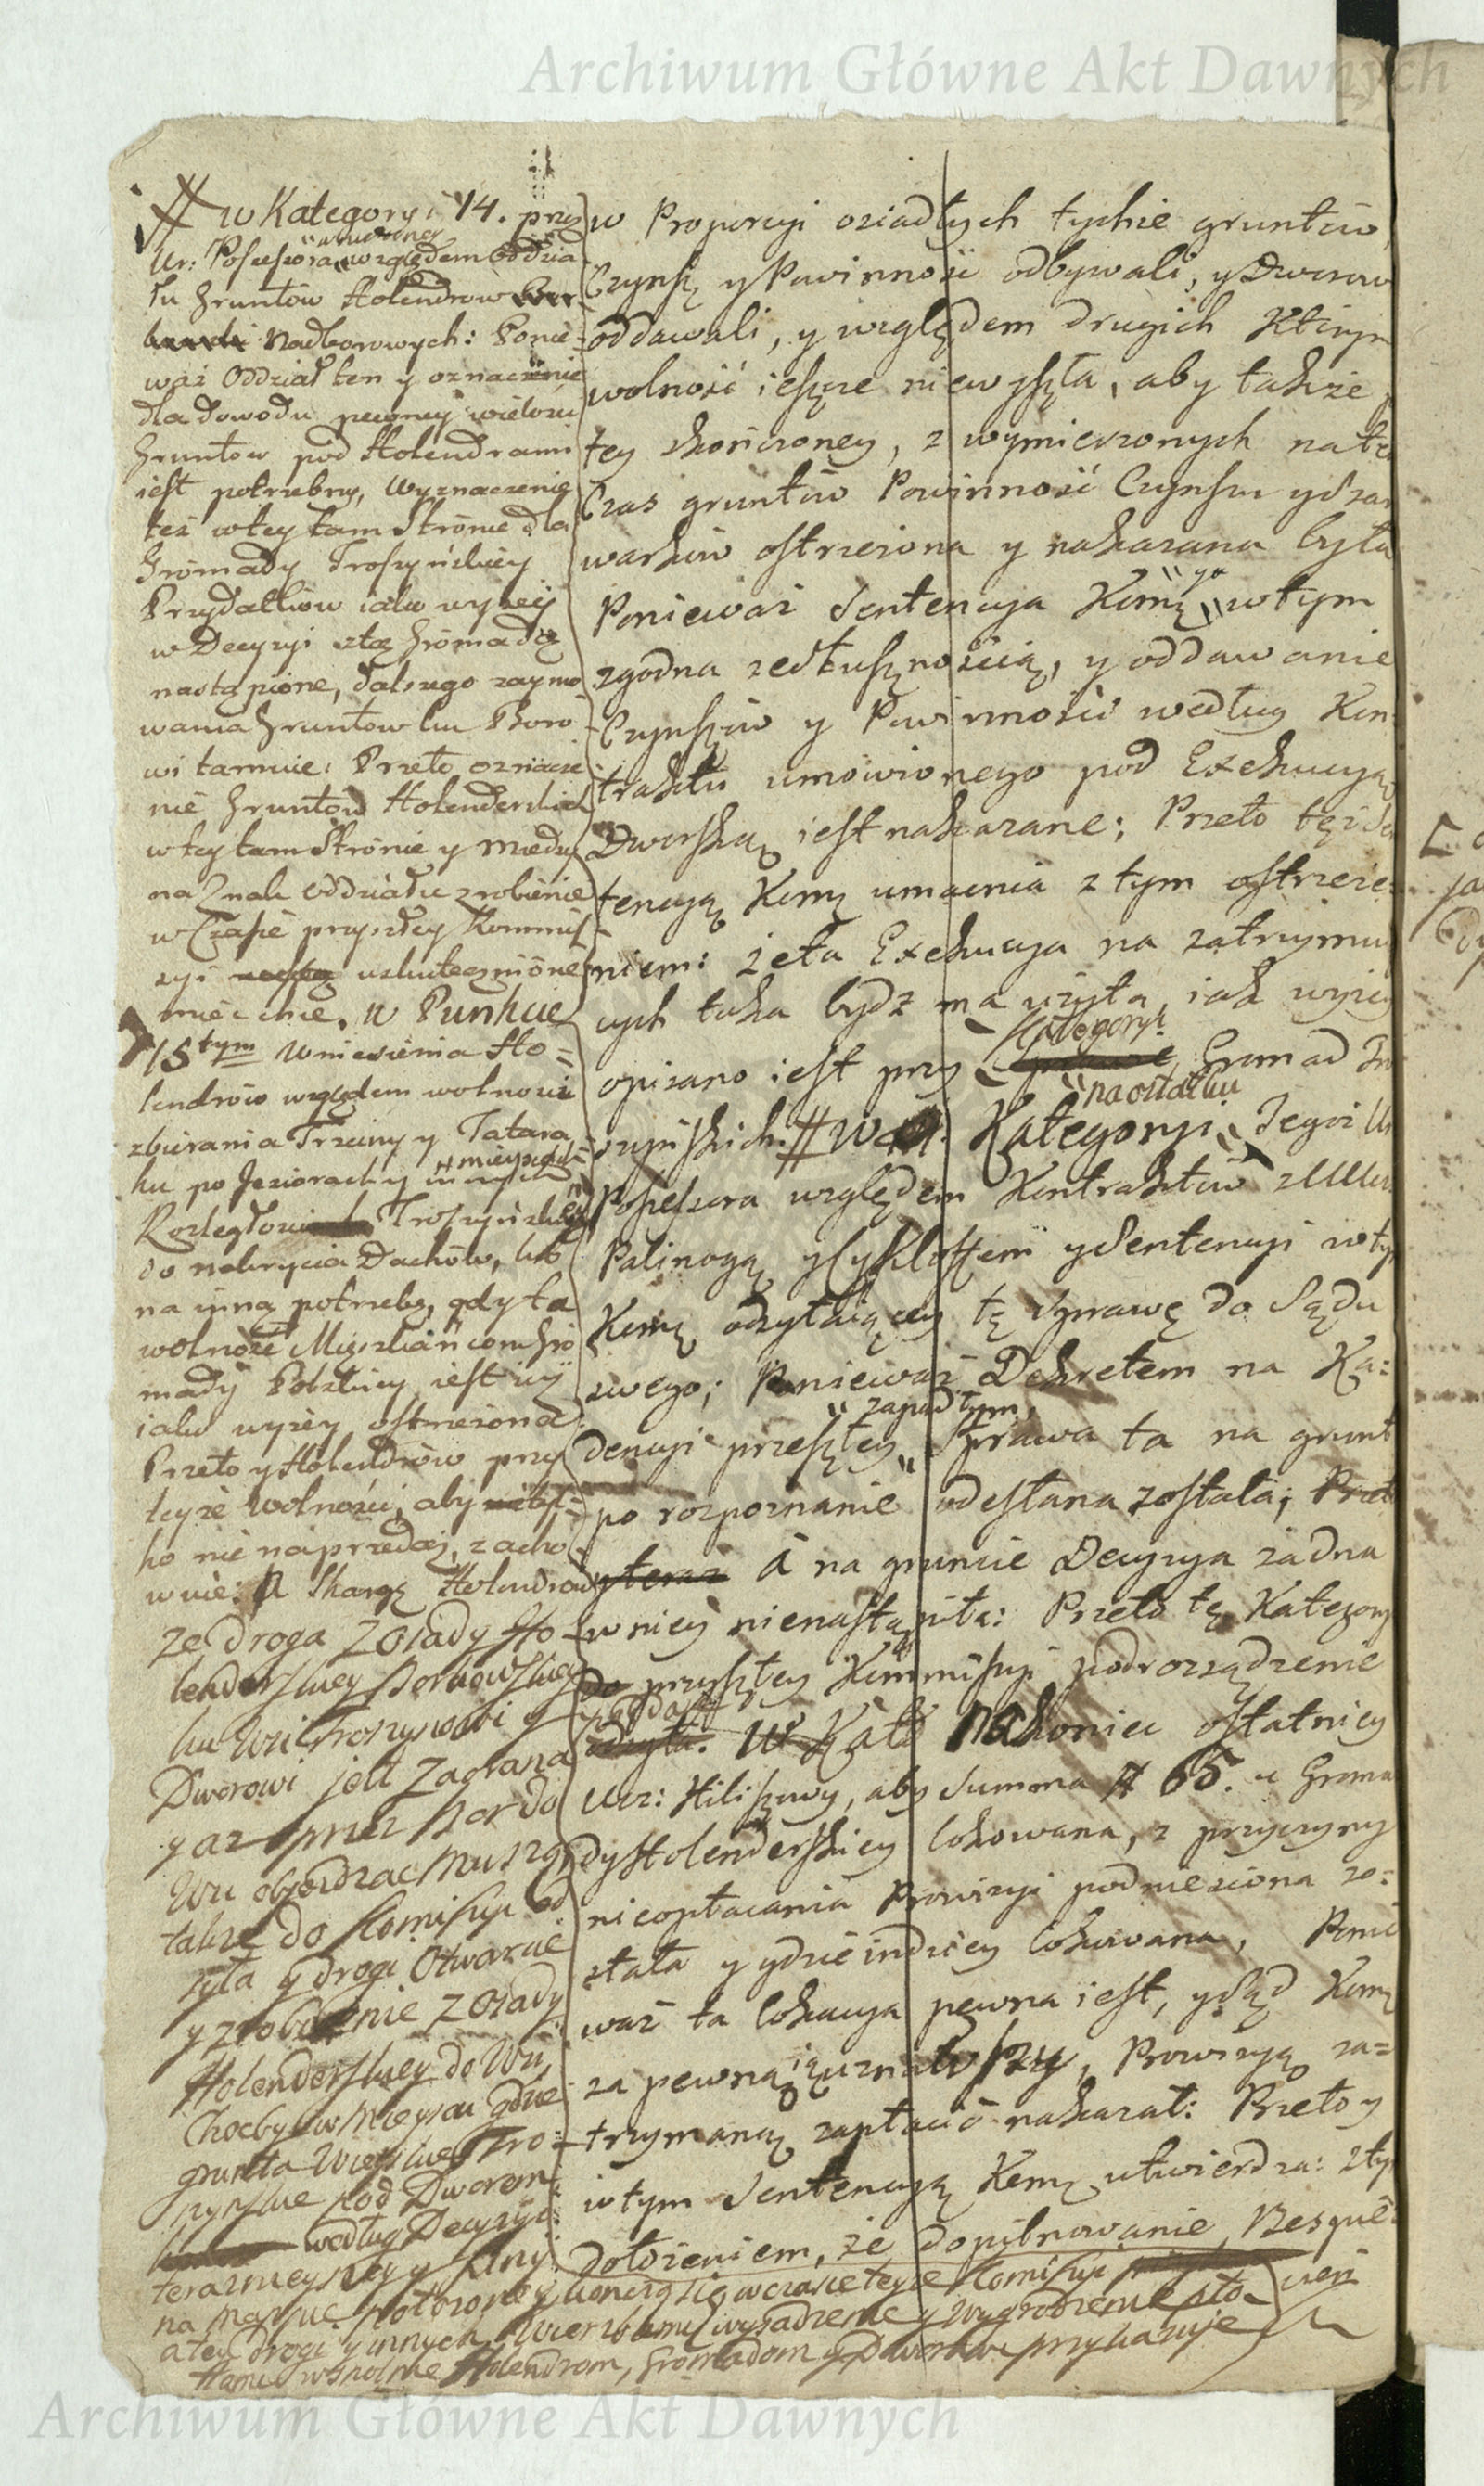 Archiwum Główne Akt Dawnych
# w Kategoryi 14. przez
Ur: Possessora względem Oddzia
łu Gruntów Holendrów
Nadborowych: Ponie-
waż Oddział ten y oznaczenie
dla dowodu pewney wielosci
Gruntow pod Holendrami
iest potrzebny, Wyznaczenie
też w tey tam Stronie dla
Gromady Troszyńskiey
Przydatków iako wyżey
w Decyzyi z tą Gromadą
nastąpione, dalszego zaymo
wania Gruntow ku Boro-
wi tamuie: Przeto oznacze
nie Gruntów Holenderskich
w tey tam Stronie y miedzy
na Znak Oddziału zrobienie
w Czasie przyszłey Kommis-
syi uskutecznione
mieć chce. W Punkcie
15tym Wniesienia Ho-
lendrów względem wolności
zbierania Trzciny y Tatara
ku po Jeziorach y innych mieyscach
Rozległości Troszyńskiey
do nakrycia Dachów, lub
na inną potrzebę, gdy ta
wolność Mieszkańcom Gro
mady Polskiey iest iuż
iako wyżey ostrzeżona
Przeto y Holendrów przy
teyże wolności, aby tyl-
ko nie na przedaż, zacho-
wuie: A Skargę Holendrów
ze droga z Osady Ho-
lenderskiey Borkowskiey
ku Wsi Troszynowi y
Dworowi jest zaorana
y aż przez Bor do
Wsi objezdzac muszą,
także do Komissyi od
syła y drogi Otwarcie
y zrobienie z Osady
Holenderskiey do Wsi,
Chocby w mieyscu gdzie
grunta Wieyskie Tro-
szynskie pod Dworem
według Decyzyi
teraznieyszey y Linyi
na Mappie położoney konczą się w czasie teyże Komissyi
a tey drogi y innych Wierzbami wysadzenie y wygrodzenie pło-
tami wspolnie Holendrom, Gromadom y Dworowi przykazuje
w Proporcyi osiadłych tychże gruntów,
Czynsz y Powinność odbywali, y Dworow
oddawali, y względem drugich którym
wolność ieszcze niewyszła, aby także
tey skończoney, z wymierzonych na ten
Czas gruntów Powinność Czynszu y Szar
warków ostrzeżona y nakazana była
Ponieważ Sentencya Koms w tym
zgodna ze słusznością, y oddawanie
Czynszów y Powinność według Kon
traktu umówionego pod Exekucyą
Dworską iest nakazane; Przeto tęż Sen
tencyą Koms umacnia z tym ostrzeże-
niem: że ta Exekucya na zatrzymu
cych taka bydz ma użyta, iak wyżey
opisano iest przy Kategoryi Gromad Tro
szyńskich. # W Kategoryi na ostatku Tegoż Ur
Possessora względem Kontraktów z
Palinogą y Cykloffem y Sentencyi w ty
Koms odsyłaiącey tę Sprawę do Sądu
swego; Ponieważ Dekretem na Ka-
dencyi przeszłey zapadłym, Sprawa ta na grunt
po rozpoznanie odesłana została; Przeto
y teraz A na gruncie Decyzya żadna
w niey nienastąpiła: Przeto tę Kategoryą
do przyszłey Kommissyi pod rozsądzenie
odsyła. W Kat Nakoniec ostatniey
Urz: Hiliszowy, aby Summa # 65. u Groma
dy Holenderskiey lokowana, z przyczyny
nieopłacania Prowizyi podniesiona zo-
stała y gdzieindziey lokowana, Ponie
waż ta lokacya pewna iest, y Sąd Koms
za pewną ią uznawszy, Prowizyą za-
trzymaną zapłacić nakazał: Przeto y
w tym Sentencyą Koms utwierdza: z tym
dołożeniem, że dopilnowanie Bespie-
czeń
Archiwum Główne Akt Dawnych